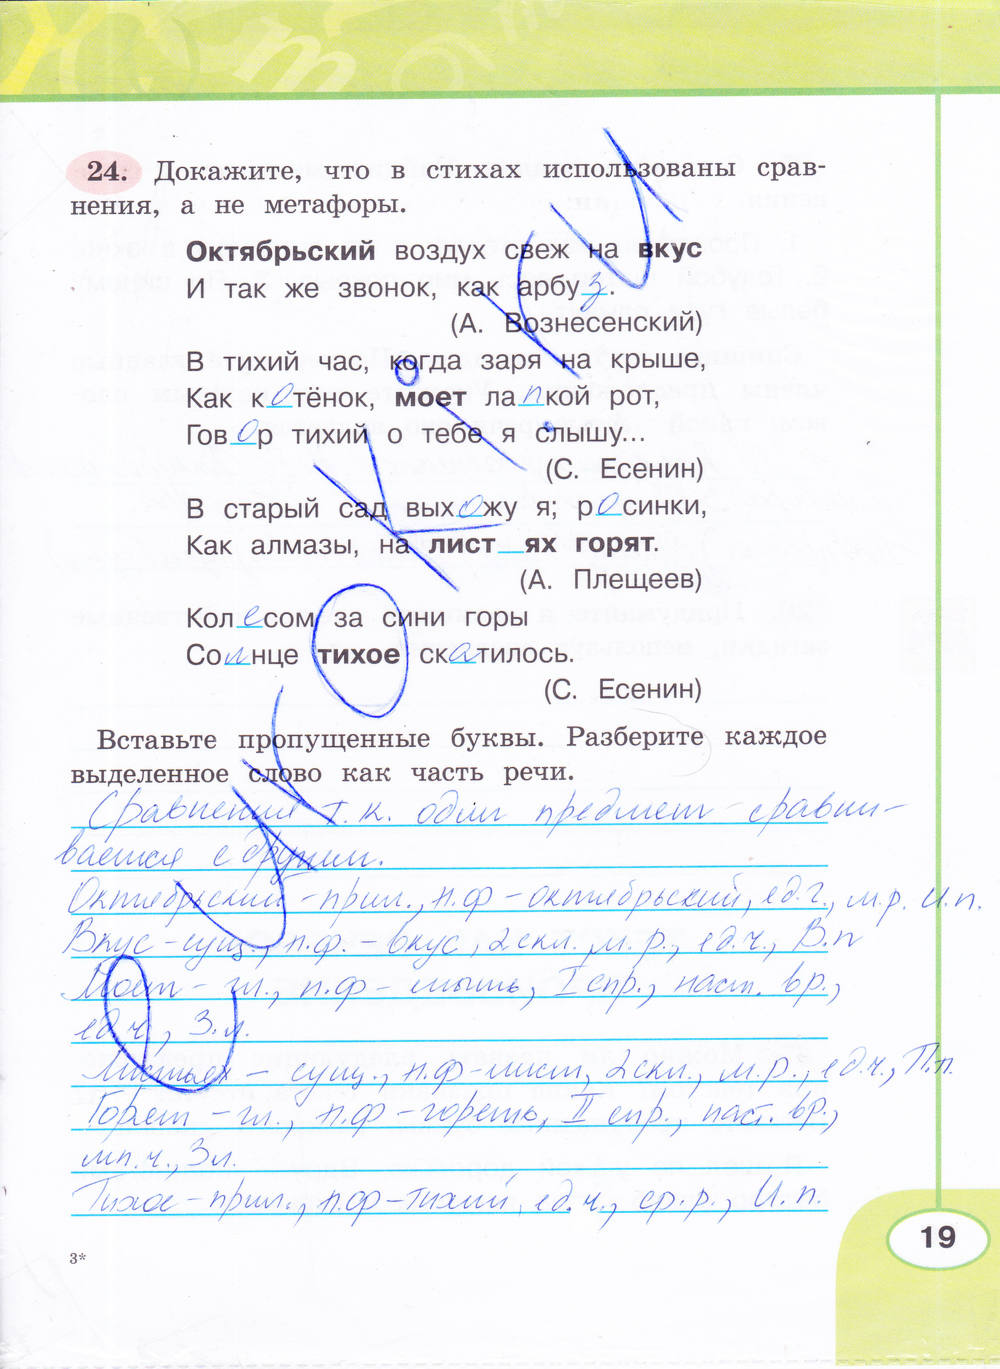 24. Докажите, что в стихах использованы срав-
нения, а не метафоры.
Октябрьский воздух свеж на вкус
И так же звонок, как арбуз.
(А. Вознесенский)
В тихий час, когда заря на крыше,
Как котёнок, моет лапкой рот,
Говор тихий о тебе я слышу...
(С. Есенин)
В старый сад выхожу я; росинки,
Как алмазы, на лист_ях горят.
(А. Плещеев)
Колесом за сини горы
Солнце тихое скатилось.
(С. Есенин)
Вставьте пропущенные буквы. Разберите каждое
выделенное слово как часть речи.
Сравнения т.к. один предмет сравни-
вается с другим.
Октябрьский - прил., н.ф - октябрьский, ед.г., м.р. И.п.
Вкус - сущ., н.ф. - вкус, 2 скл., м.р., ед.ч., В.п
Моет - гл., н.ф - мыть, I спр., наст. вр.,
ед.ч, 3.л.
Листьях - сущ., н.ф - лист, 2 скл., м.р., ед.ч., П.п.
Горят - гл., н.ф - гореть, II спр., наст. вр.,
мн.ч., 3л.
Тихое - прил., н.ф - тихий, ед.ч., ср.р., И.п.
19
3*